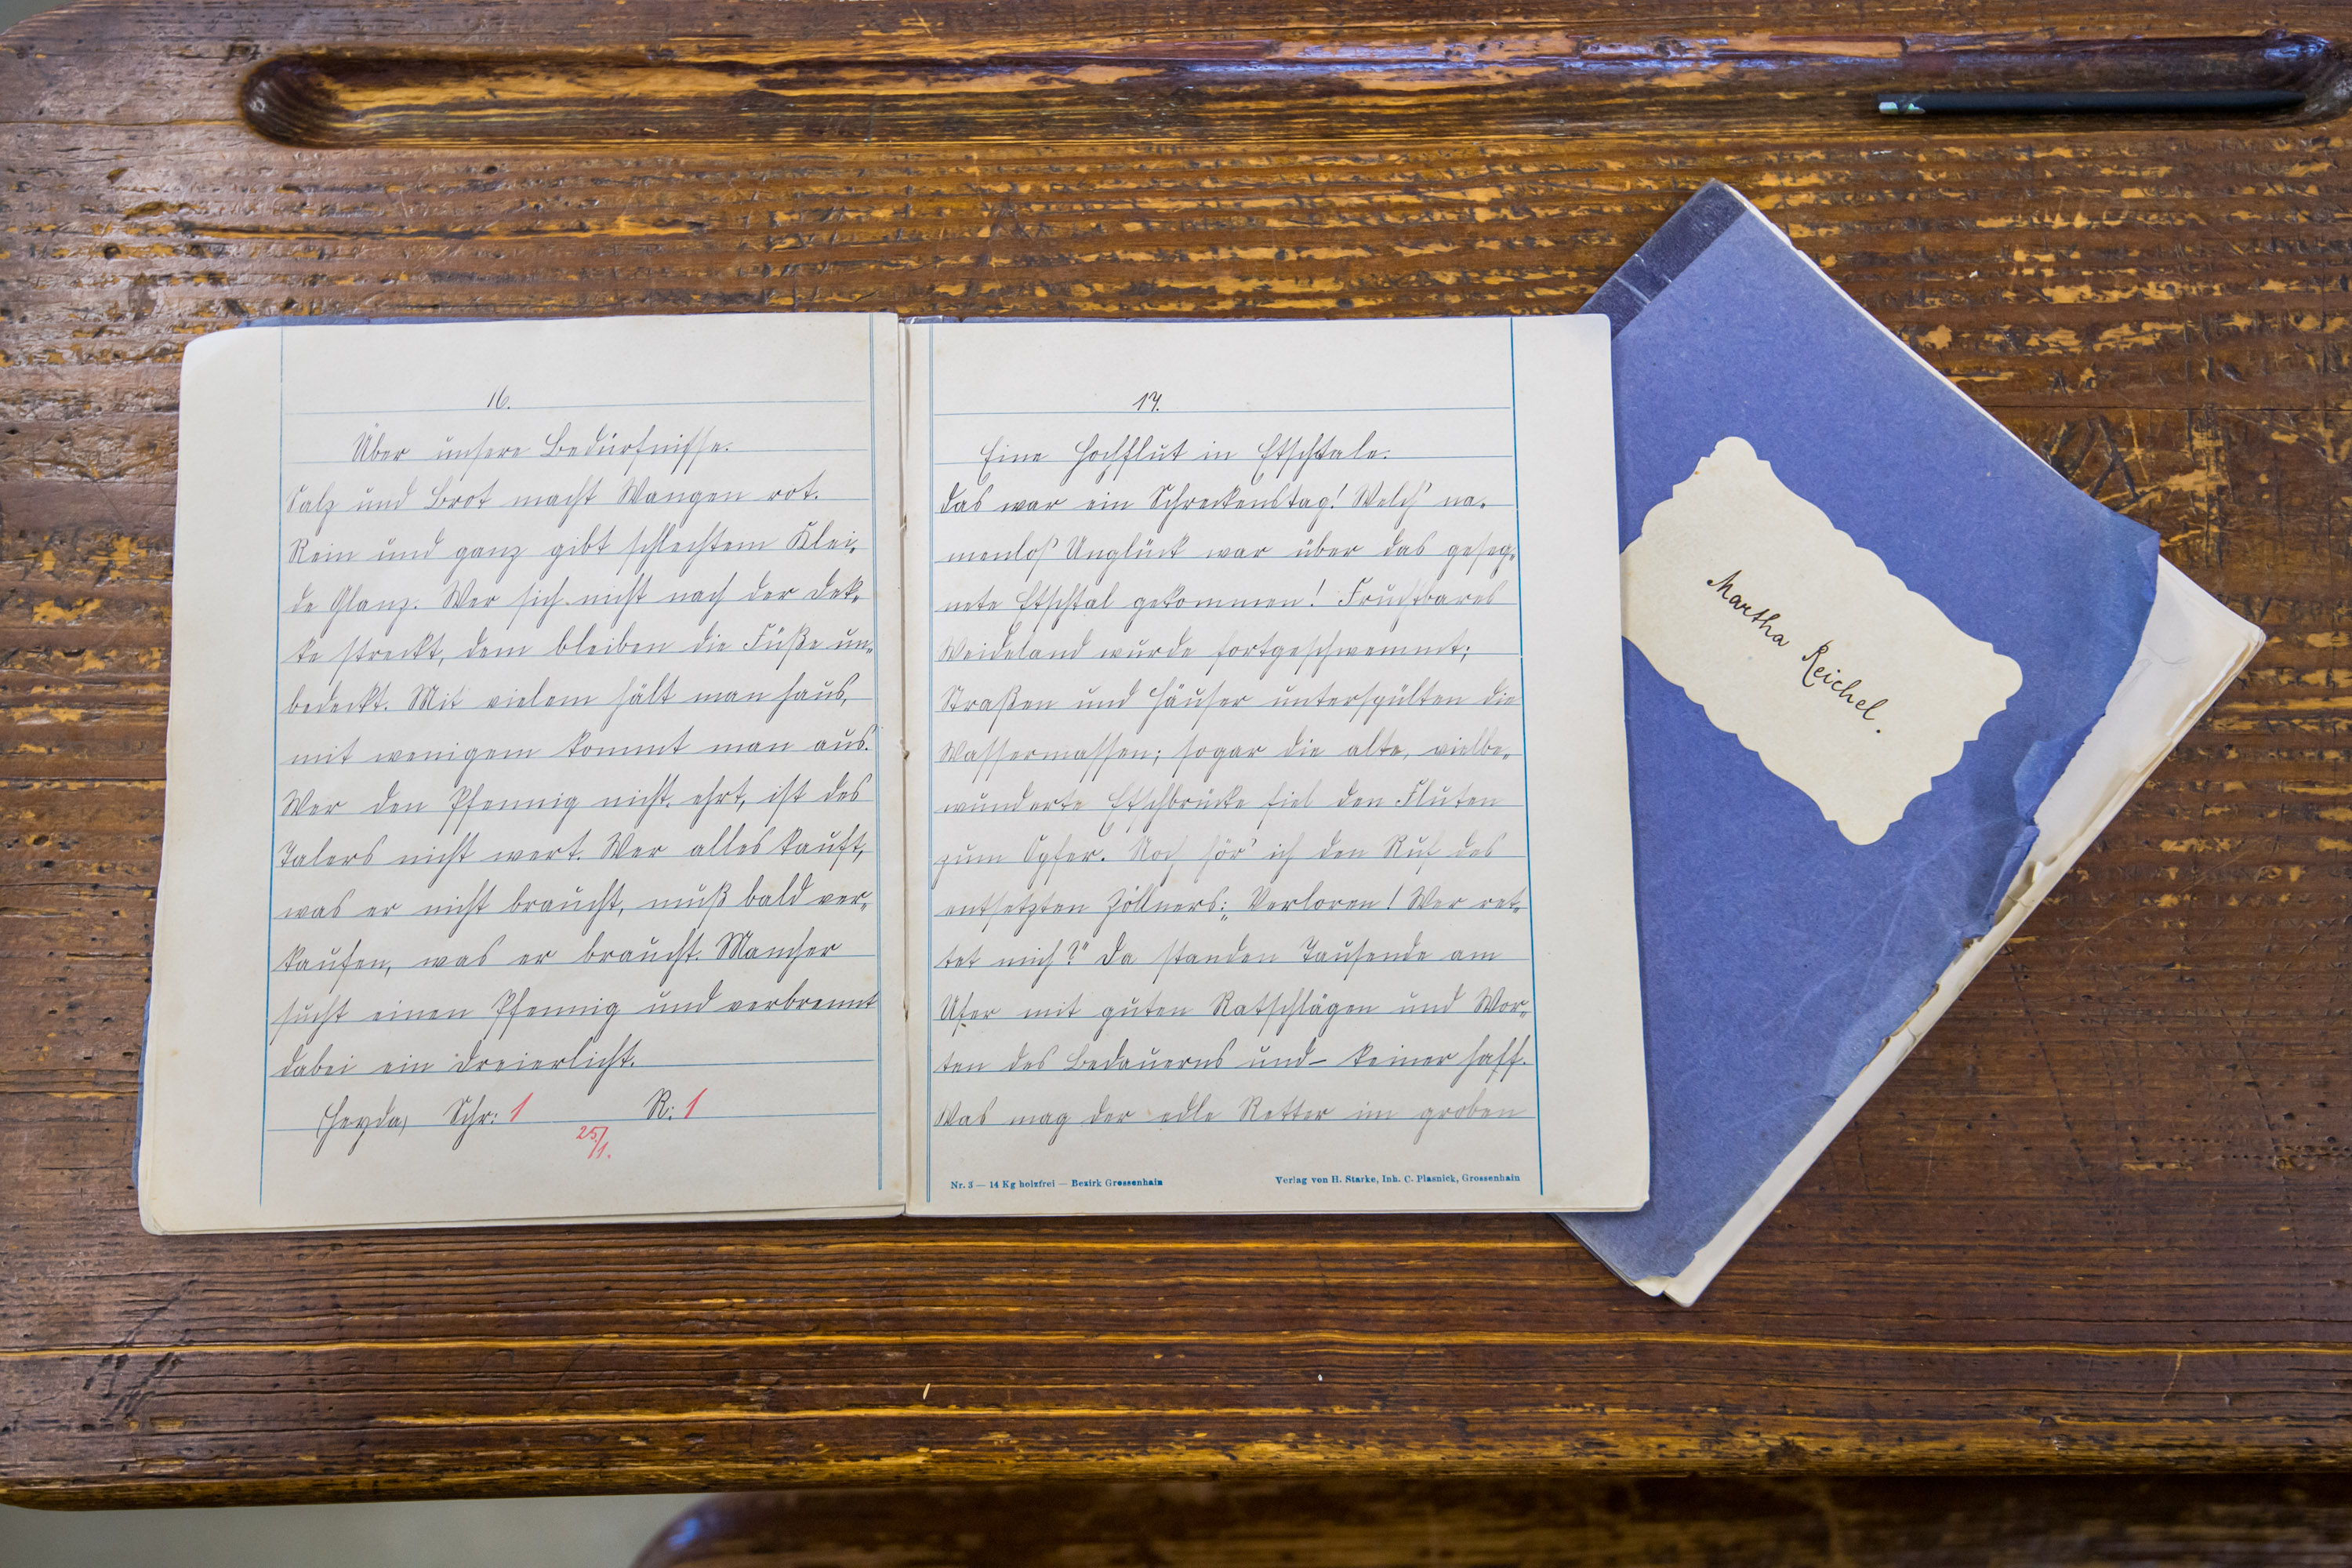 16.
Über unsere Bedürfnisse.
Salz und Brot macht Wangen rot.
Rein und ganz gibt schlechtem Klei-
de Glanz. Wer sich nicht nach der Dek-
ke streckt, dem bleiben die Füße un-
bedeckt. Mit vielem hält man haus,
mit wenigem kommt man aus.
Wer den Pfennig nicht ehrt, ist des
Talers nicht wert. Wer alles kauft,
was er nicht braucht, muß bald ver-
kaufen, was er braucht. Mancher
sucht einen Pfennig und verbrennt
dabei ein Dreierlicht.
(Heyda) Schr: 1 R: 1
25/1.
17.
Eine Hochflut in Etschtale.
Das war ein Schreckenstag! Welch' na-
menlos' Unglück war über das geseg-
nete Etschtal gekommen! Fruchtbares
Weideland wurde fortgeschwemmt;
Straßen und Häuser unterspülten die
Wassermassen; sogar die alte, vielbe-
wunderte Etschbrücke fiel den Fluten
zum Opfer. Noch hör' ich den Ruf des
entsetzten Zöllners: „Verloren! Wer ret-
tet mich?" Da standen Tausende am
Ufer mit guten Ratschlägen und Wor-
ten des Bedauerns und – keiner half.
Was mag der edle Retter im groben
Nr. 3 — 14 Kg holzfrei — Bezirk Grossenhain
Verlag von H. Starke, Inh. C. Plasnick, Grossenhain
Martha Reichel.